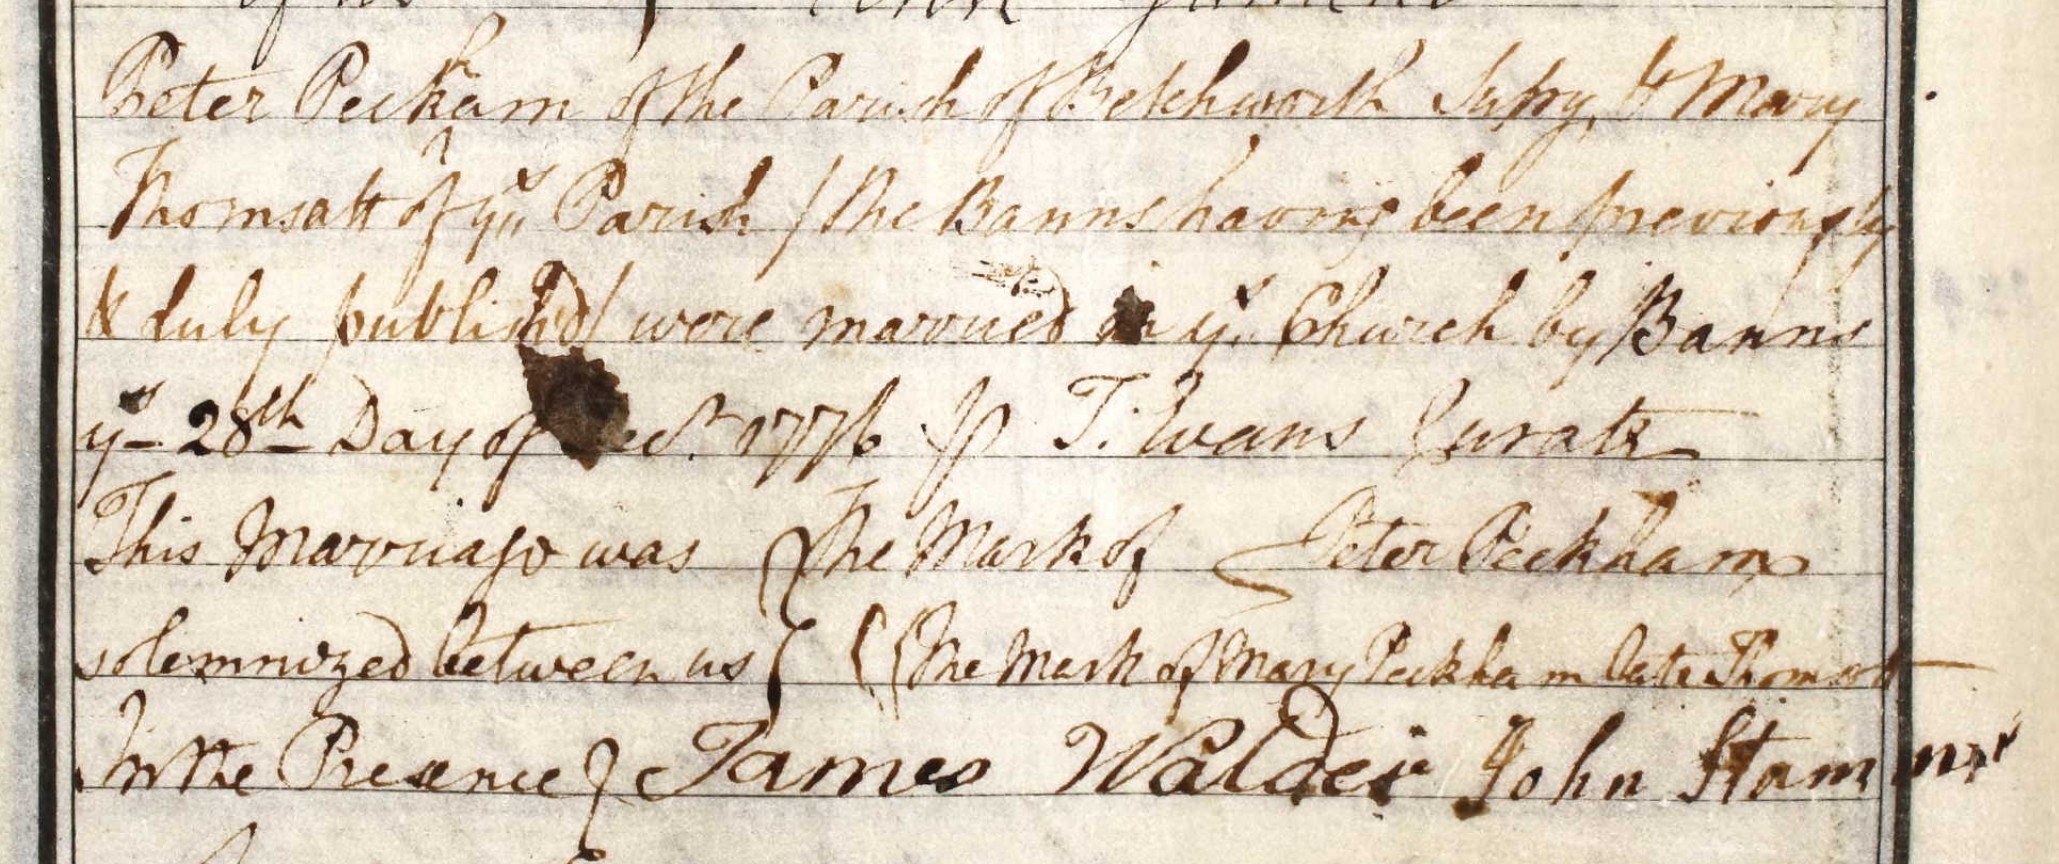 Peter Peckham of the Parish of Betchworth Surry, & Mary
Thomsatt of ys Parish / the Banns having been previously
& duly publish'd / were married in ys Church by Banns
ys 28th Day of Decr. 1776 p T. Evans Curate
This Marriage was { The Mark of Peter Peckham
solemnized between us { The Mark of Mary Peckham late Thomsatt
In the Presence } James Walder John Stammer